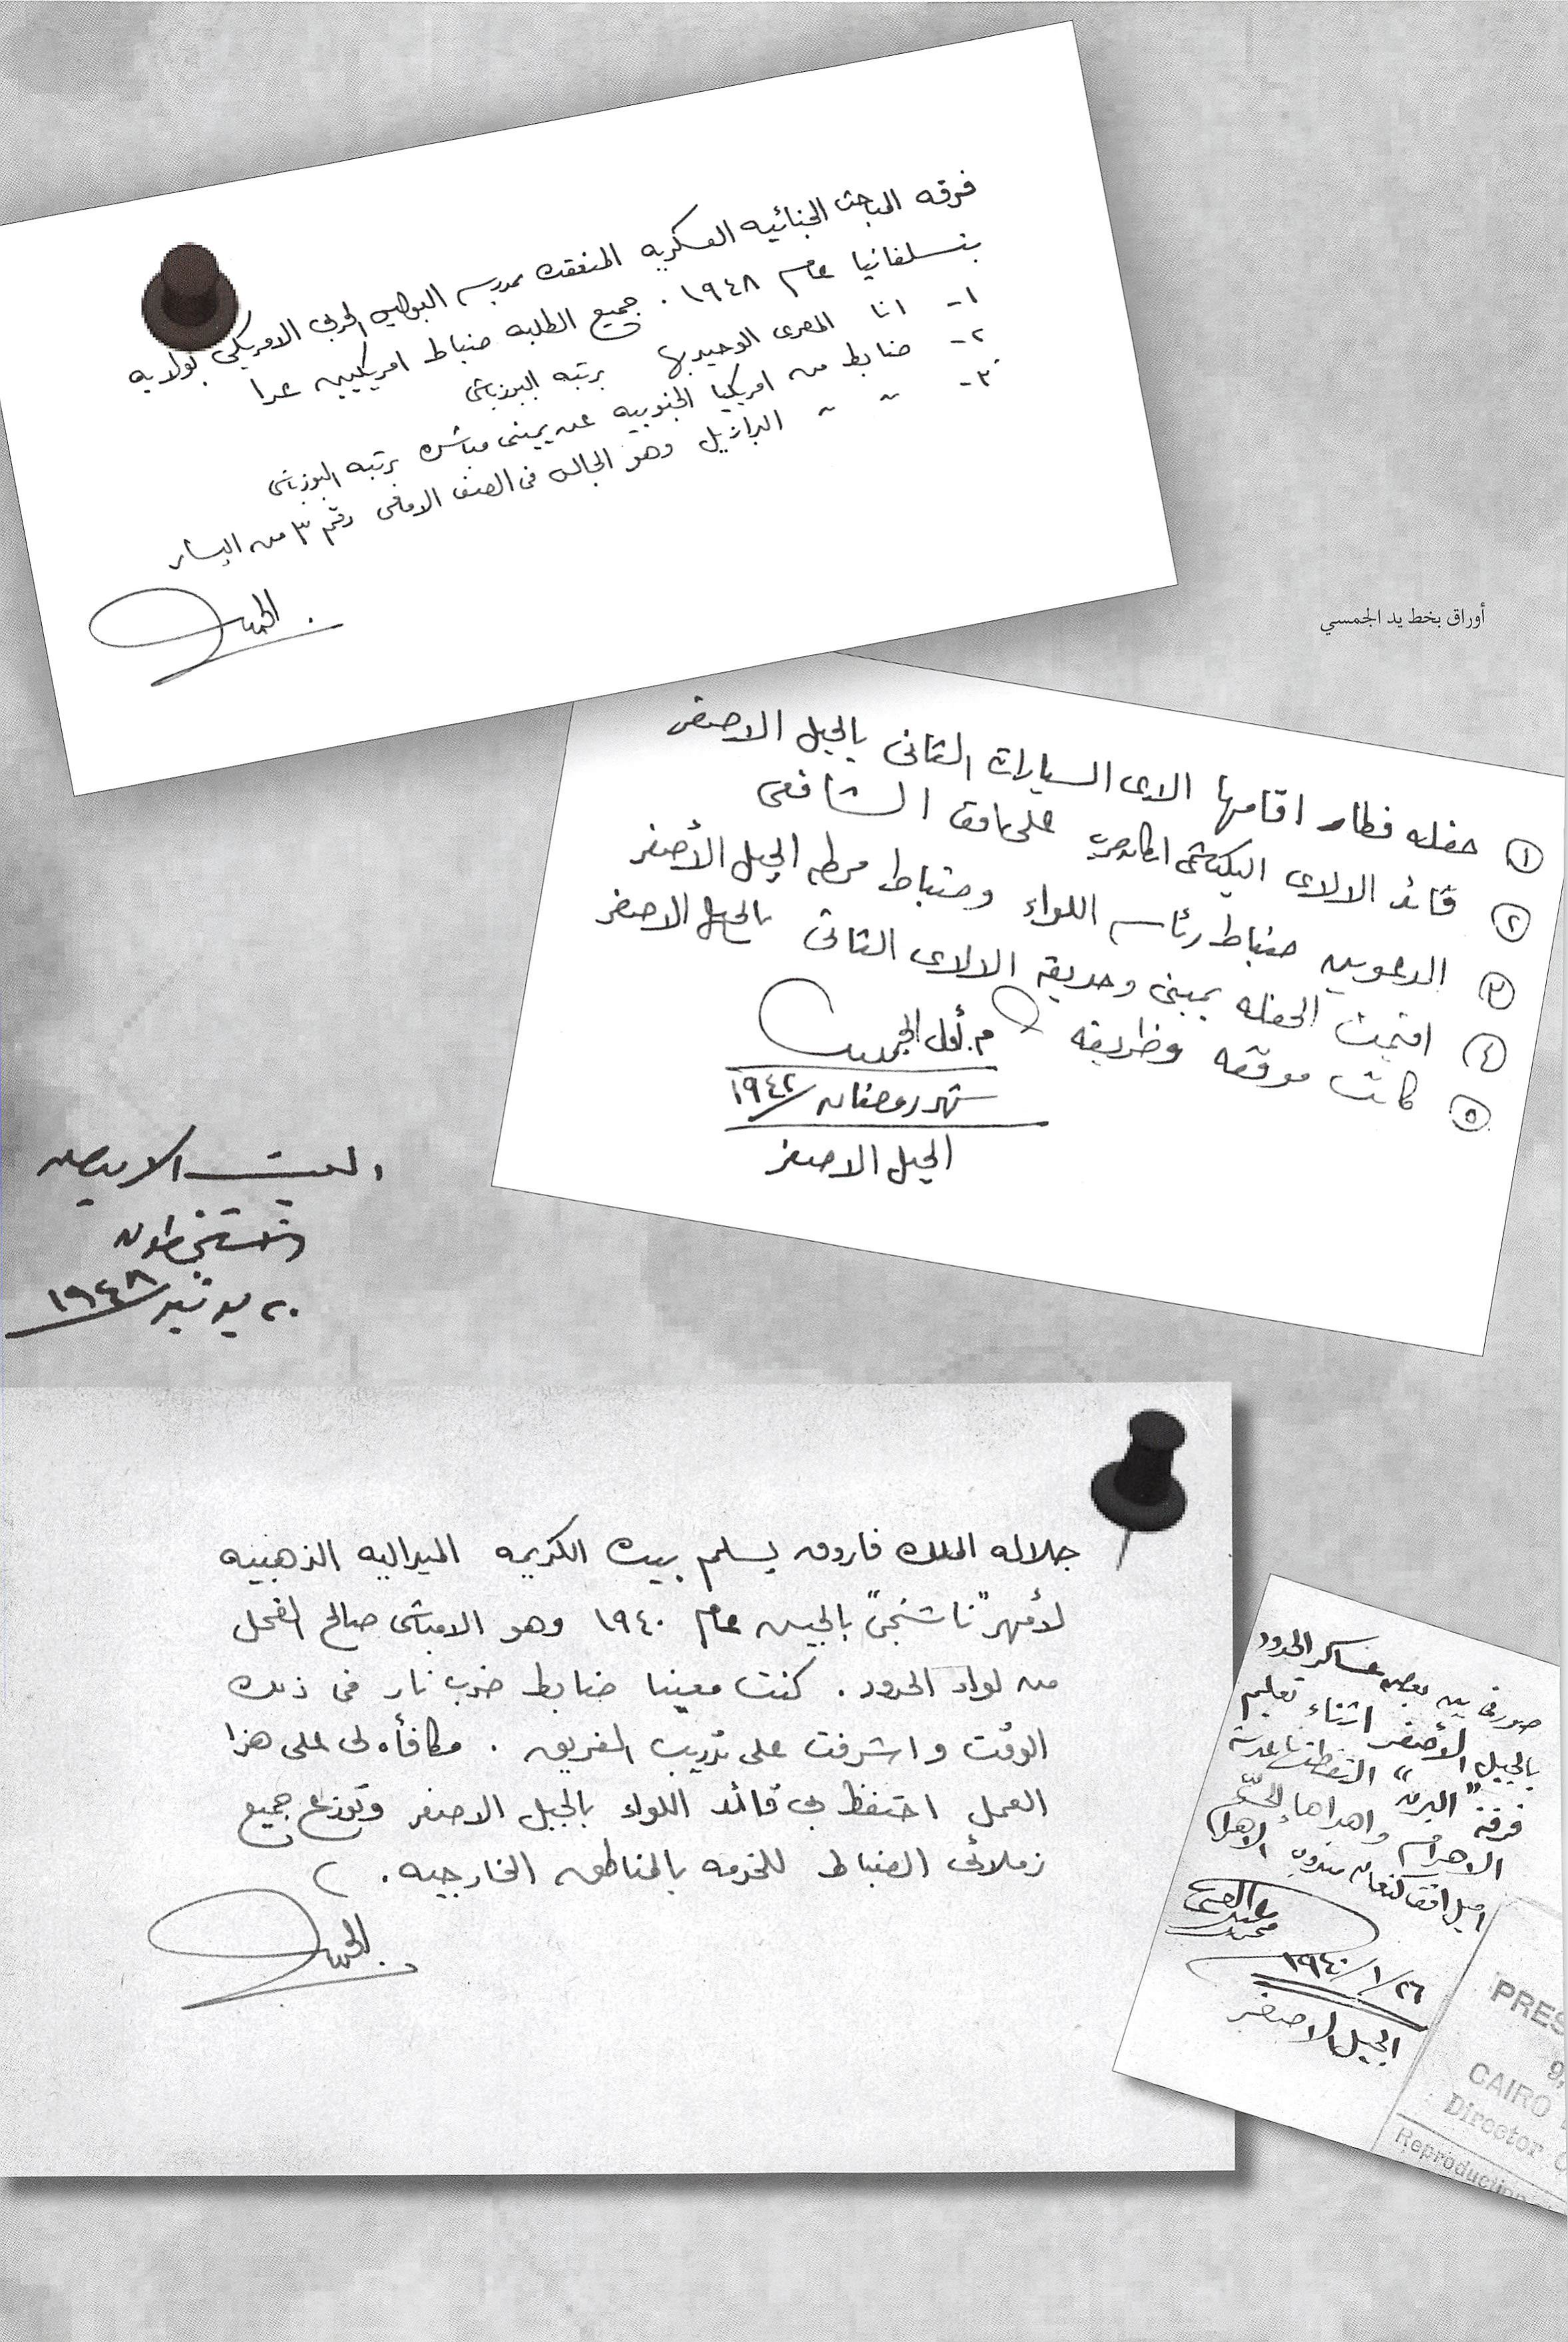 فرقه المباحث الجنائيه العسكريه المنعقده بمدرسه البوليس الحربى الامريكى بولايه
بنسلفانيا عام ١٩٤٨ . جميع الطلبه ضباط امريكيين عدا
١- انا المصرى الوحيد بها برتبه اليوزباشى
٢- ضابط من امريكيا الجنوبيه عن يمينى مباشره برتبه اليوزباشى
٣- " " " البرازيل وهو الجالس فى الصف الامامى رقم ٣ من اليسار
الجمسى
أوراق بخط يد الجمسي
١ حفله فطار اقامها الالاى السيارات الثانى بالجبل الاصفر
٢ قائد الالاى البكباشى على الشافعى
٣ المدعوين ضباط رئاسه اللواء وضباط محطه الجبل الأصفر
٤ اقيمت الحفله بمبنى وحديقه الالاى الثانى بالجبل الاصفر
٥ كانت موفقه وظريفه
م. أول الجمسى
شهر رمضان / ١٩٤٢
الجبل الاصفر
البيت الابيض
واشنجطون
٢٠ يونيه / ١٩٤٨
جلاله الملك فاروق يسلم بيده الكريمه الميداليه الذهبيه
لأمهر "ناشنجى" بالجيش عام ١٩٤٠ وهو الامباشى صالح الفحل
من لواء الحدود . كنت معينا ضابط ضرب نار فى ذلك
الوقت واشرفت على تدريب الفريق . مكافأه لى على هذا
العمل احتفظ بى قائد اللواء بالجبل الاصفر وتوزع جميع
زملائى الضباط للخدمه بالمناطق الخارجيه .
الجمسى
صورتى بين بعض عساكر الحدود
بالجبل الأصفر اثناء تعليم
فرقة "البرن" التقطتها عدسة
الاهرام واهداها إلىّ
اميل افندى كنعان مندوب الاهرام
محمد عبد الغنى
٢٦/١/١٩٤٠
الجبل الاصفر
PRES
9,
CAIRO
Director
Reproduction